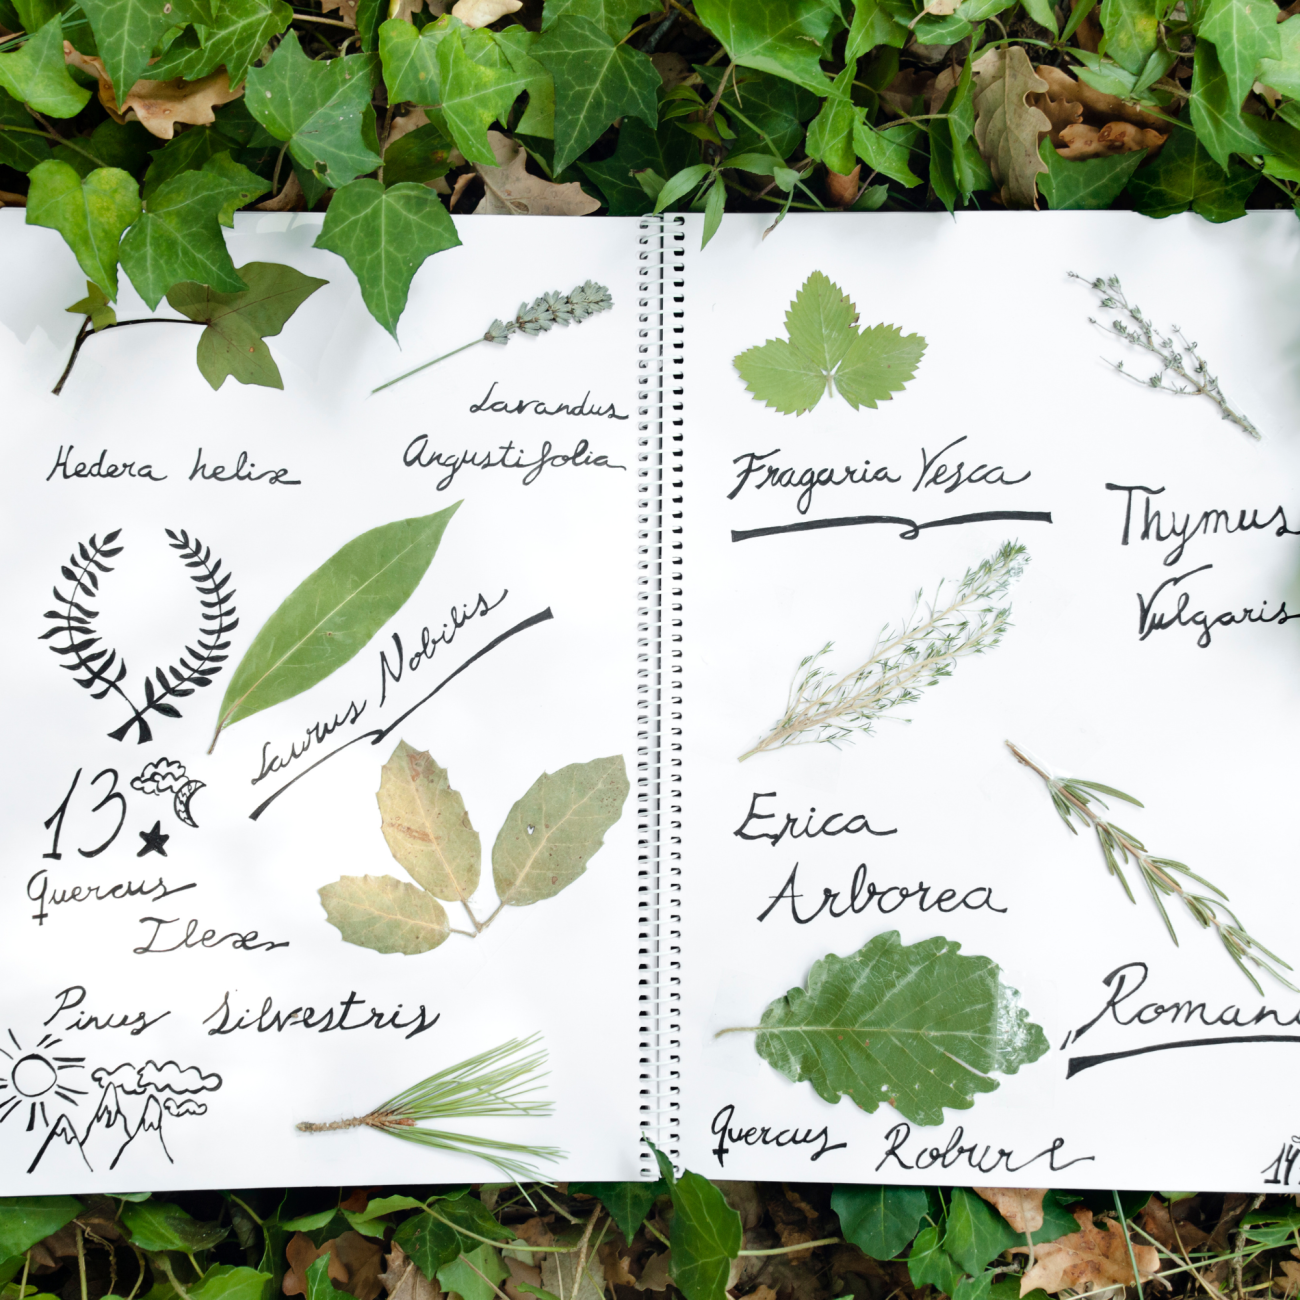 Hedera helix
Lavandus
Angustifolia
Laurus Nobilis
13
Quercus
Ilex
Pinus Silvestris
Fragaria Vesca
Thymus
Vulgaris
Erica
Arborea
Quercus Robur
14